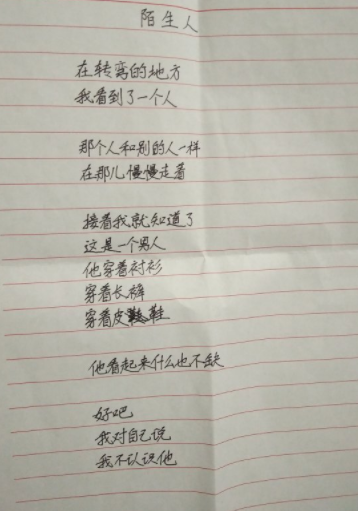 陌生人
在转弯的地方
我看到了一个人
那个人和别的人一样
在那儿慢慢走着
接着我就知道了
这是一个男人
他穿着衬衫
穿着长裤
穿着皮鞋
他看起来什么也不缺
好吧
我对自己说
我不认识他